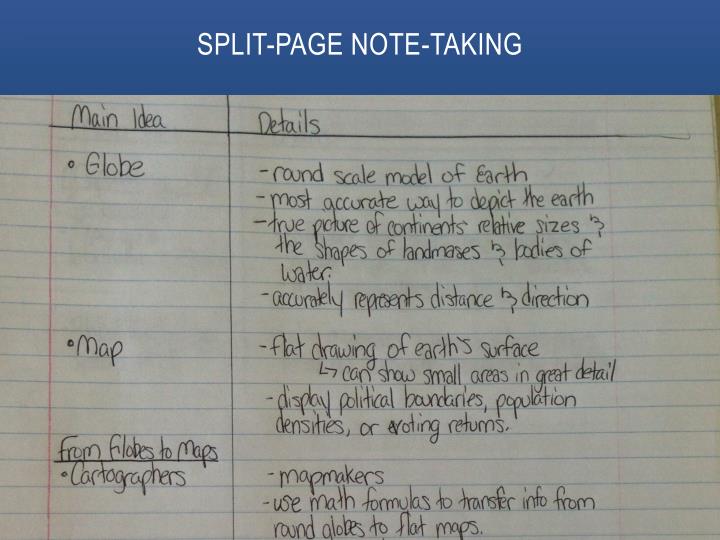 SPLIT-PAGE NOTE-TAKING
Main Idea Details
• Globe - round scale model of Earth
- most accurate way to depict the earth
- true picture of continents relative sizes &
the shapes of landmases & bodies of
water.
- accurately represents distance & direction
• Map - flat drawing of earth's surface
↳ can show small areas in great detail
- display political boundaries, population
densities, or voting returns.
From Globes to Maps
• Cartographers - mapmakers
- use math formulas to transfer info from
round globes to flat maps.